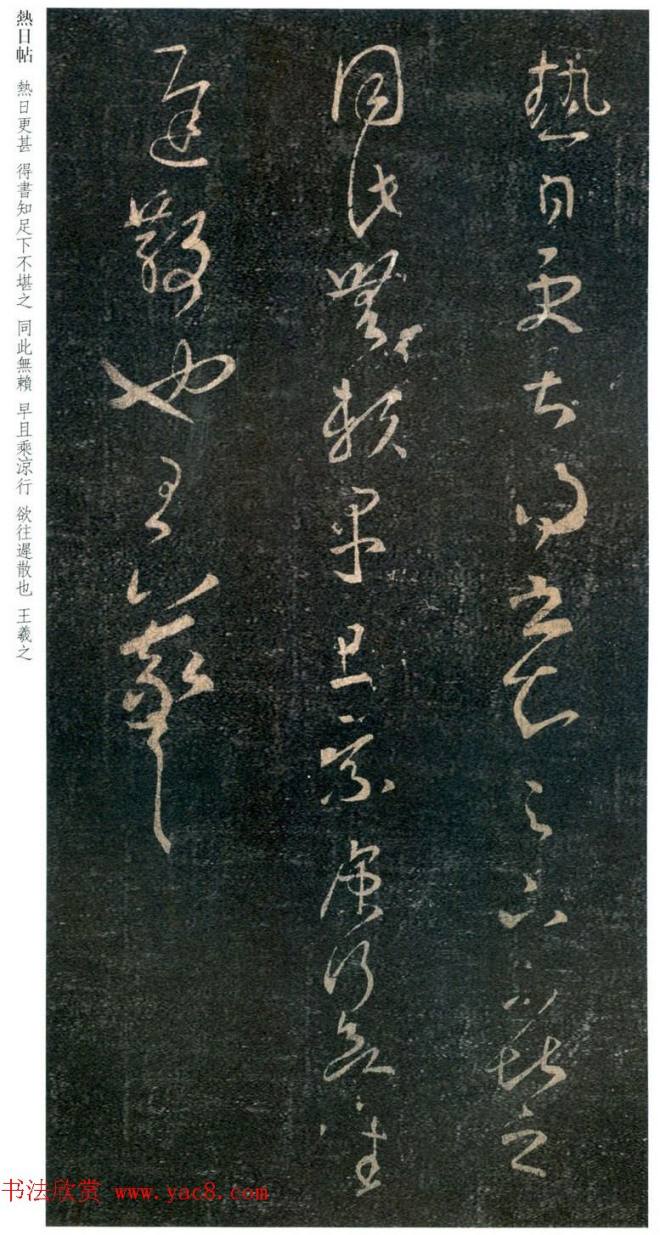 熱日更甚得書知足下不堪之
同此無賴早且乘凉行欲往
遲散也王羲之
熱日帖 熱日更甚 得書知足下不堪之 同此無賴 早且乘凉行 欲往遲散也 王羲之
书法欣赏 www.yac8.com